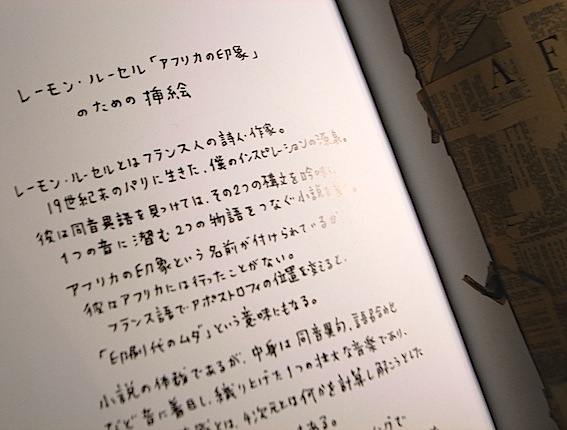 レーモン・ルーセル「アフリカの印象」
のための 挿絵
レーモン・ルーセルとはフランス人の詩人・作家。
19世紀末のパリに生きた、僕のインスピレーションの源泉。
彼は同音異語を見つけては、その2つの構文を吟味し
1つの音に潜む2つの物語をつなぐ小説を
アフリカの印象という名前が付けられているが
彼はアフリカには行ったことがない。
フランス語でアポストロフィの位置を変えると、
「印刷代のムダ」という意味にもなる。
小説の体裁であるが、中身は同音異句、語呂合わせ
など音に着目し、織り上げた1つの壮大な音楽であり、
とは、4次元とは何かを計算し解こうとした
ある。
AF